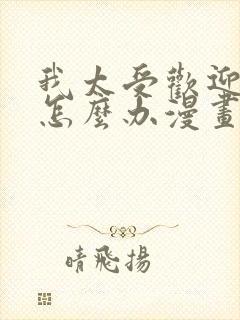 我太受歡迎
怎麼办漫畫
晴飛揚